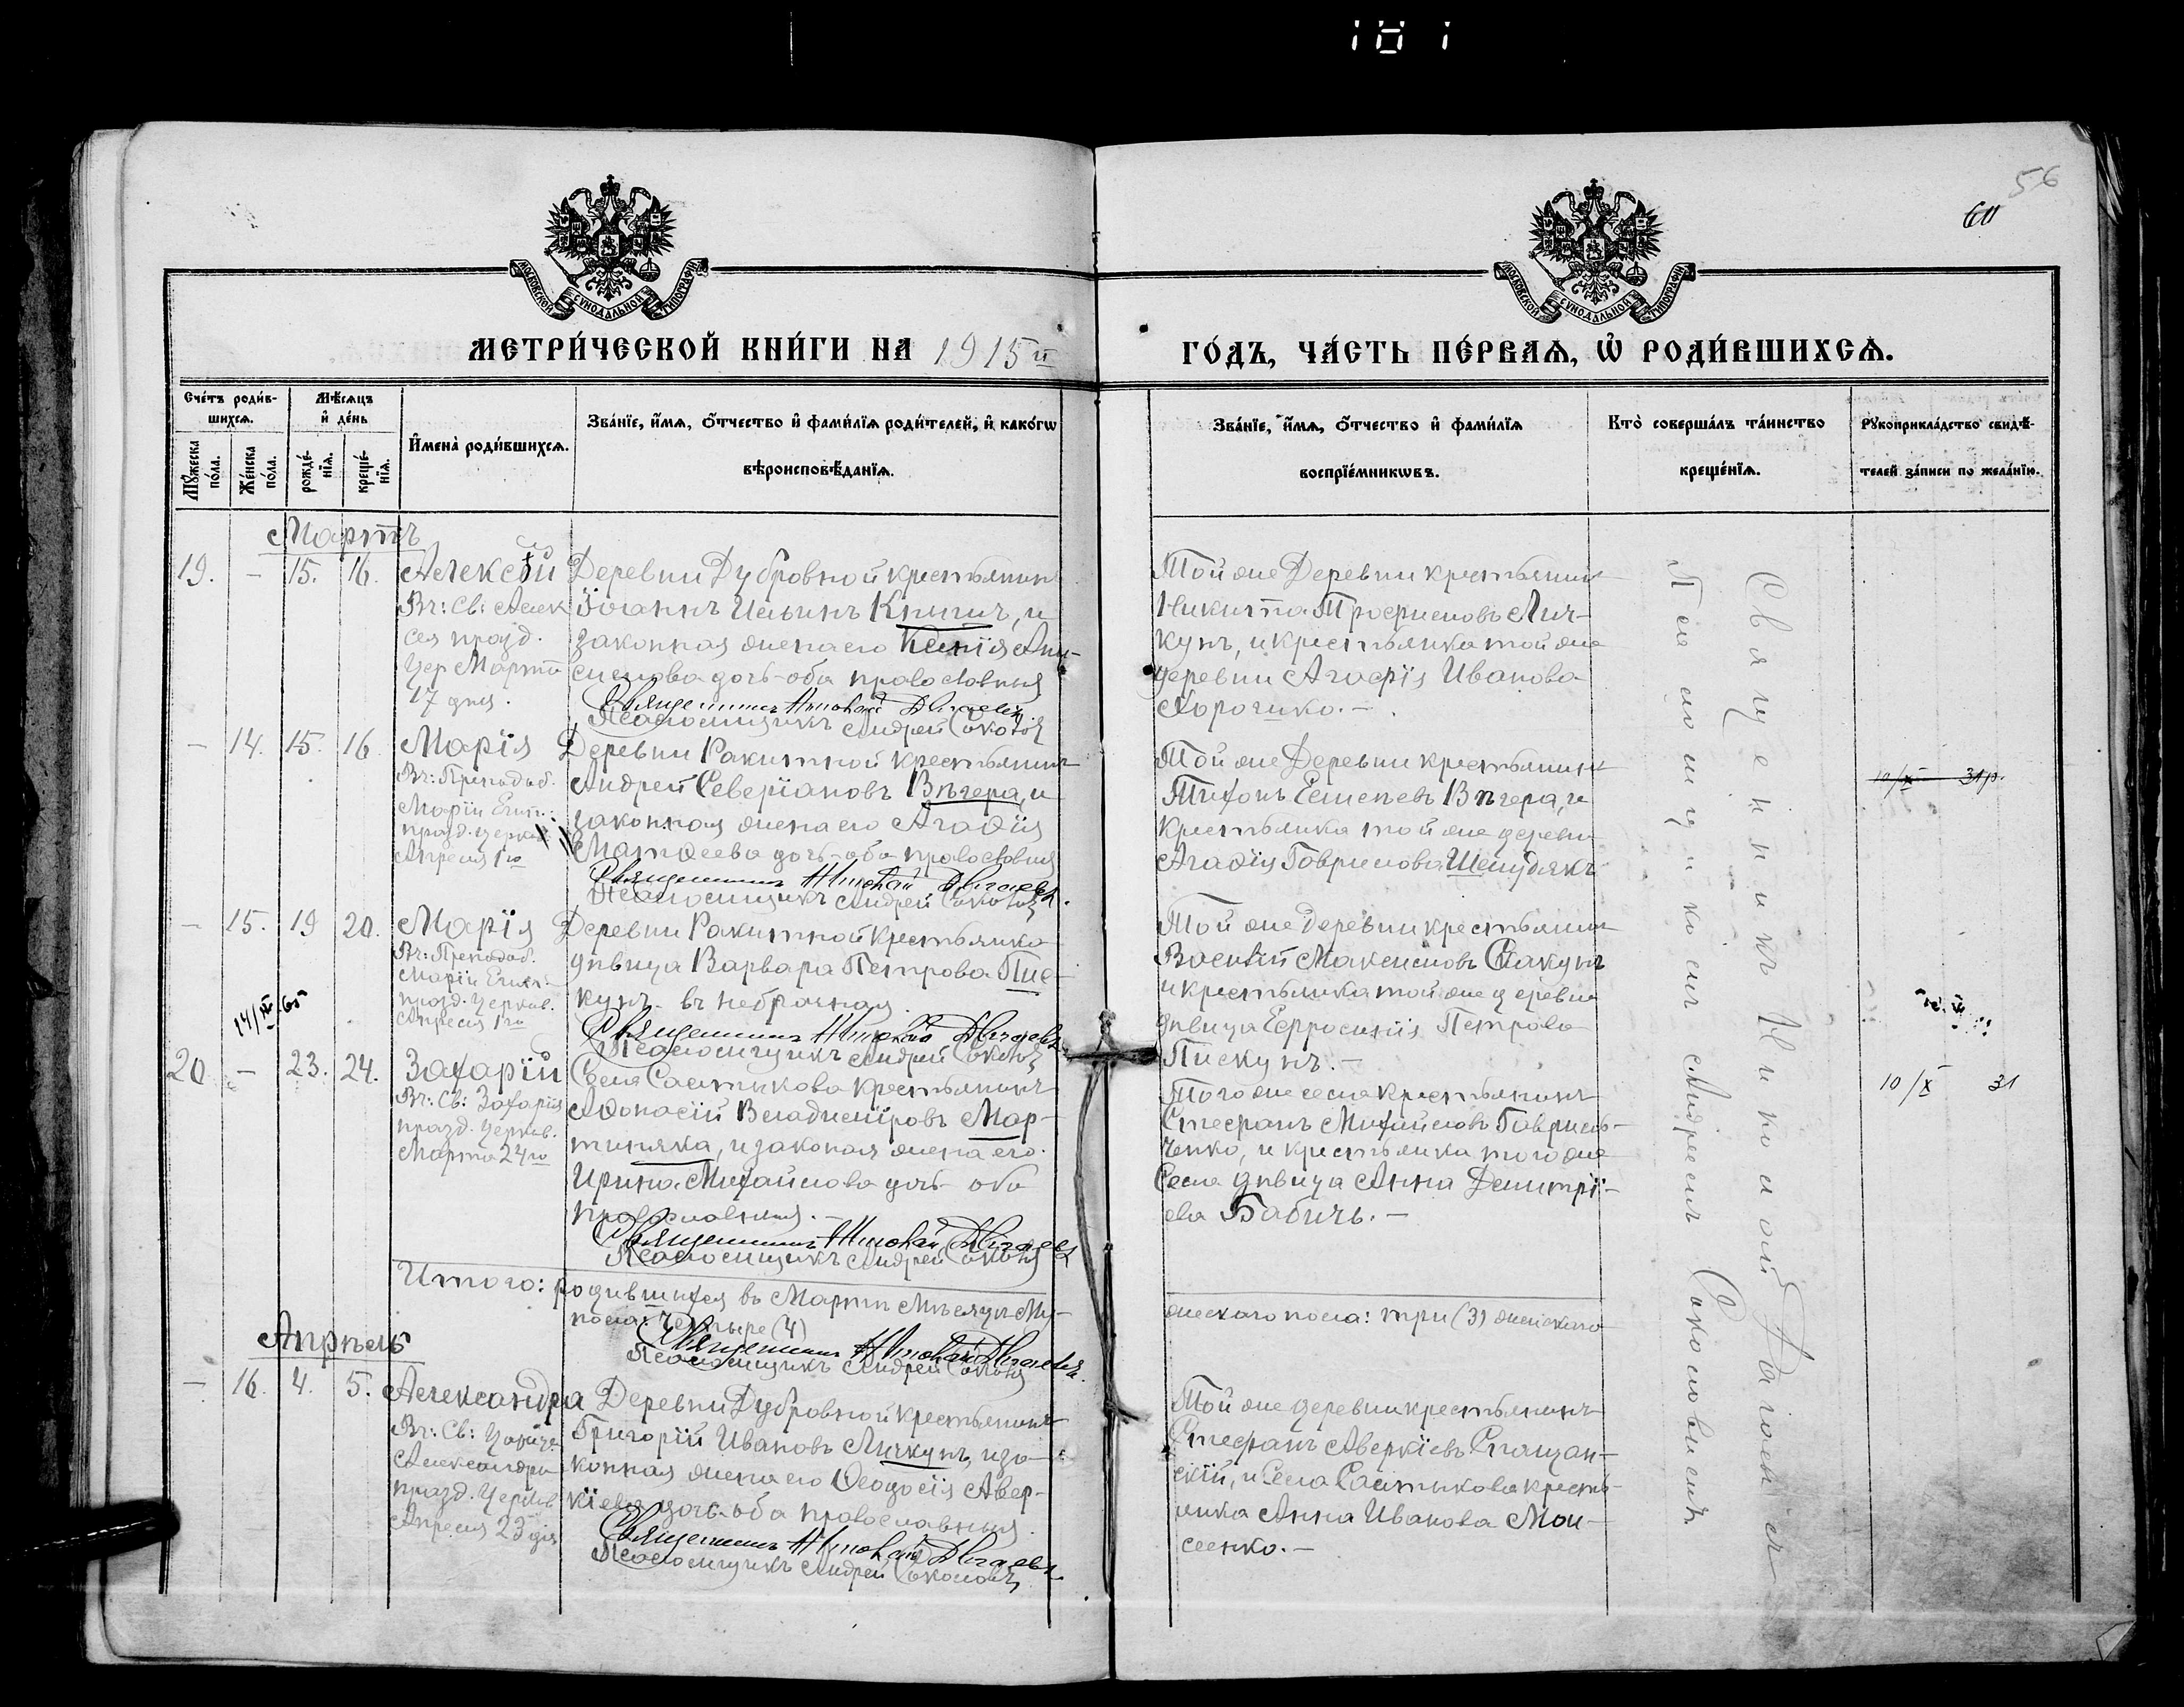 56
60
МОСКОВСКОЙ СѴНОДАЛЬНОЙ ТИПОГРАФІИ
МОСКОВСКОЙ СѴНОДАЛЬНОЙ ТИПОГРАФІИ
МЕТРИ́ЧЕСКОЙ КНИ́ГИ НА 1915й
ГО́ДЪ, ЧА́СТЬ ПЕ́РВАѦ, Ѡ҆ РОДИ́ВШИХСѦ.
Сче́тъ роди́в-
шихсѧ.
Мꙋ́жеска
по́ла.
Же́нска
по́ла.
Мѣ́сѧцъ
и҆ де́нь
рожде́-
нїѧ.
креще́-
нїѧ.
И҆мена̀ роди́вшихсѧ.
Зва́нїе, и҆́мѧ, ѻ҆́тчество и҆ фами́лїѧ роди́телей, и҆ како́гѡ
вѣроисповѣ́данїѧ.
Зва́нїе, и҆́мѧ, ѻ҆́тчество и҆ фами́лїѧ
воспрїе́мникѡвъ.
Кто̀ соверша́лъ та́инство
креще́нїѧ.
Рꙋкоприкла́дство свидѣ́-
телей за́писи по жела́нїю.
Мартъ
19. — 15. 16. Алексѣй
Въ: Св: Алек
сея празд.
Цер Марта
17 дня.
Деревни Дубровной крестьянинъ
Іоаннъ Ильинъ Книгичъ, и
законная жена его Ксенія Ани-
симова дочь - оба православныя
Священникъ Николай
Псаломщикъ Андрей Соколов
Той же Деревни крестьянинъ
Никита Трофимовъ Лич-
кунъ, и крестьянка той же
деревни Агафія Иванова
Хорошко. —
— 14. 15. 16. Марія
Въ: Преподоб.
Маріи Егип.:
празд. церков
Апреля 1го
Деревни Ракитной крестьянинъ
Андрей Северіановъ Вѣчера, и
законная жена его Агафія
Матѳеева дочь - оба православныя
Священникъ Николай
Псаломщикъ Андрей Соколов
Той же Деревни крестьянинъ
Тихонъ Вѣчера, и
крестьянка той же деревни
Агафія Гаврилова
10/X 31
— 15. 19 20. Марія
Въ: Преподоб.
Маріи Егип.:
празд. Церков.
Апреля 1го
Деревни Ракитной крестьянка
дѣвица Варвара Петрова Пис-
кунъ - въ небрачная
Священникъ Николай
Псаломщикъ Андрей Соколов
Той же Деревни крестьянинъ
Василій Максимовъ Скакунъ
и крестьянка той же деревни
дѣвица Ефросинія Петрова
Пискунъ. —
20 — 23. 24. Захарій
Въ: Св: Захарія
празд. Церков.
Марта 24го
Села Салтыкова крестьянинъ
Аѳонасій Владиміровъ Мар-
тиняка, и законая жена его
Ирина Михайлова дочь - оба
православныя. —
Священникъ Николай
Псаломщикъ Андрей Соколов
Того же села крестьянинъ
Стефанъ Михайловъ Гаврилъ-
ченко, и крестьянка того же
Села дѣвица Анна Димитрі-
ева Бабичъ. —
10/X 31
Итого: родившихся въ Мартѣ мѣсяцѣ Му-
жескаго пола: три (3) женскаго
пола: Четыре (4)
Священникъ Николай
Псаломщикъ Андрей Соколов
Апрѣль
— 16. 4. 5. Александра
Въ: Св: Царицы
Александры
празд. Церков
Апреля 23 дня
Деревни Дубровной крестьянинъ
Григорій Ивановъ Личкунъ, и за-
конная жена его Ѳеодосія Авер-
кіева дочь - оба православныя.
Священникъ Николай
Псаломщикъ Андрей Соколовъ
Той же деревни крестьянинъ
Стефанъ Аверкіевъ Спащан-
скій, и Села Салтыкова кресть-
янка Анна Иванова Мои-
сеенко. —
Священникъ Николай
Псаломщикомъ Андреемъ Соколовымъ